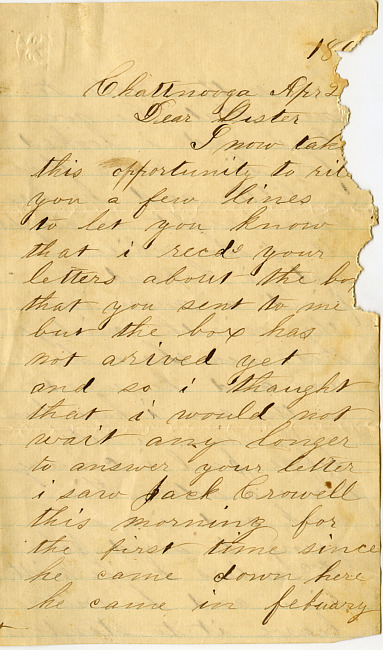 18
Chattnooga Apr 2
Dear Sister
I now tak
this opportunity to rite
you a few lines
to let you know
that i recd your
letters about the bo
that you sent to me
but the box has
not arived yet
and so i thaught
that i would not
wait any longer
to answer your letter
i saw Jack Crowell
this morning for
the first time since
he came down here
he came in febuary